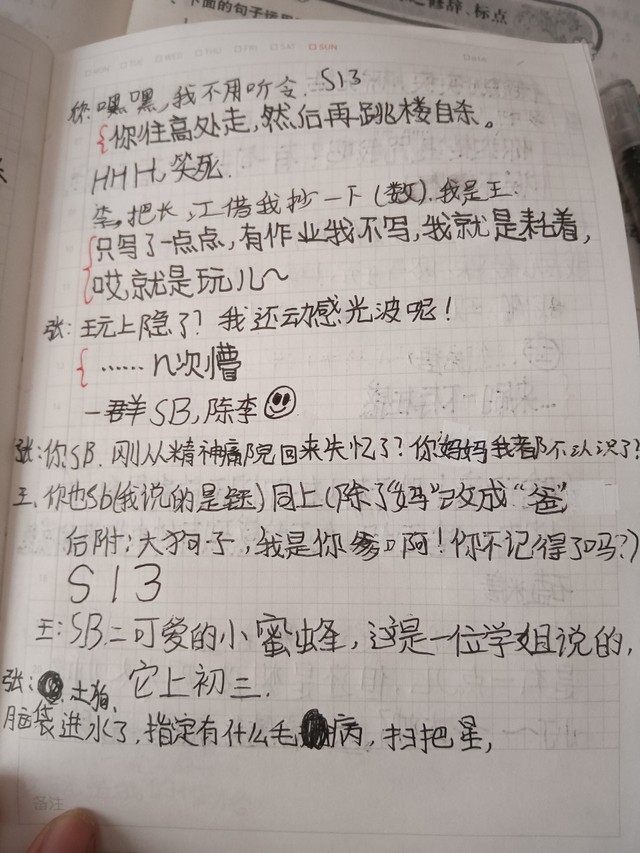 、下面的句子运用
修辞、标点
MON TUE WED THU FRI SAT SUN
嘿嘿,我不用听令. S13
你往高处走,然后再跳楼自杀。
HHH,笑死.
李,把长江借我抄一下(数).我是王.
只写了一点点,有作业我不写,我就是耗着,
哎,就是玩儿~
张:玩上隐了?我还动感光波呢!
……n次懵
一群SB,陈李
张:你SB.刚从精神病院回来失忆了?你妈妈我都不认识了?
王.你也Sb(我说的是)同上(除了"妈"改成"爸"
后附:大狗子,我是你爹啊!你不记得了吗?)
S13
王:SB二可爱的小蜜蜂,这是一位学姐说的,
它上初三.
张:土狗,
脑袋进水了,指定有什么毛病,扫把星,
备注